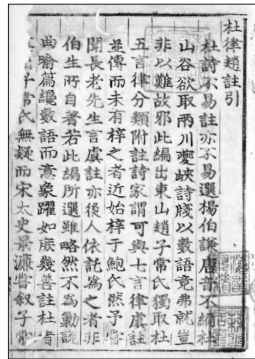 杜律趙註引
杜詩不易註亦不易選楊伯謙唐音不編杜
山谷欲取兩川夔峽詩牋以數語竟弗就豈
非以難故邪此編出東山趙子常氏獨取杜
五言律分類附註詩家謂可與七言律虞註
並傳而未有梓之者近始梓于鮑氏然予嘗
聞長老先生言虞註亦後人依託為之者非
伯生所自著若此編所選雖略然不為勦說
曲喻篇纔數語而意象躍如庶幾善註杜者
子常氏無疑而宋太史景濂嘗敘子常